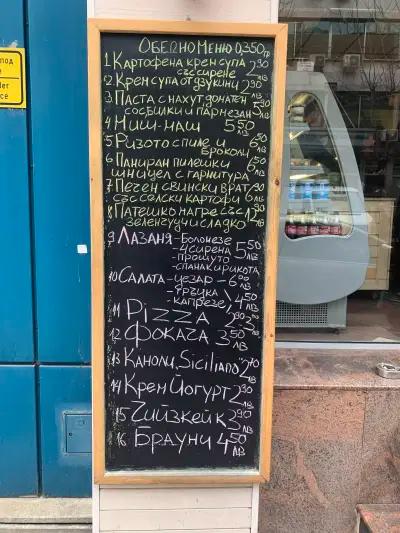 под
Обедно Меню 0,350гр
1 Картофена крем супа 2 90
със сирене лв
2 Крем супа от дзукини 2 90
3 Паста с нахут, доматен
сос, билки и пармезан 5 90 лв
4 Миш-маш 5 50 лв
5 Ризото спиле и 6 50
броколи лв
6 Паниран пилешки 6 50
шницел с гарнитура лв
7 Печен свински врат 6 90
със селски картофи лв
8 Патешко магре със 12 90
зеленчуци сладко лв
9 Лазаня - Болонезе 5 50 лв
- 4 сирена
- прошуто
- спанак и рикота
10 Салата - цезар - 6 00 лв
- гръцка
- капрезе 4 50 лв
11 Pizza 2 90 3 20
12 Фокача 3 50 лв
13 Каноли Siciliano 2 70 лв
14 Крем Йогурт 2 90 лв
15 Чийзкейк 3 90 лв
16 Брауни 4 50 лв